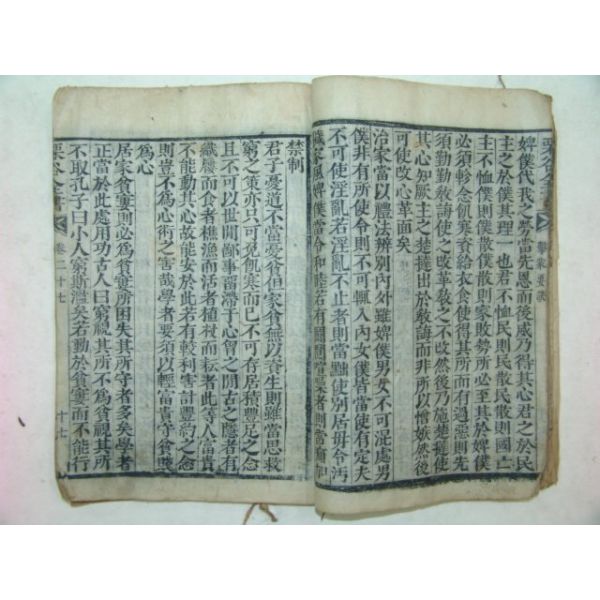 栗谷全書 擊蒙要訣
婢僕代我之勞當先恩而後威乃得其心君之於民
主之於僕其理一也君不恤民則民散民散則國亡
主不恤僕則僕散僕散則家敗勢所必至其於婢僕
必須軫念飢寒資給衣食使得其所而有過惡則先
須勤勤敎誨使之改革敎之不改然後乃施楚撻使
其心知厥主之楚撻出於敎誨而非所以憎嫉然後
可使改心革面矣
治家當以禮法辨別內外雖婢僕男女不可混處男
僕非有所使令則不可輒入內女僕皆當使有定夫
不可使淫亂若淫亂不止者則當黜使別居毋令汚
穢家風婢僕當令和睦若有鬪鬩喧噪者則當痛加
禁制
君子憂道不當憂貧但家貧無以資生則雖當思救
窮之策亦只可免飢寒而已不可存居積豐足之念
且不可以世間鄙事留滯于心胷之間古之隱者有
織屨而食者樵漁而活者植杖而耘者此等人富貴
不能動其心故能安於此若有較利害計豐約之念
則豈不爲心術之害哉學者要須以輕富貴守貧賤
爲心
居家貧窶則必爲貧窶所困失其所守者多矣學者
正當於此處用功古人曰窮視其所不爲貧視其所
不取孔子曰小人窮斯濫矣若動於貧窶而不能行
栗谷全書 卷二十七 十七